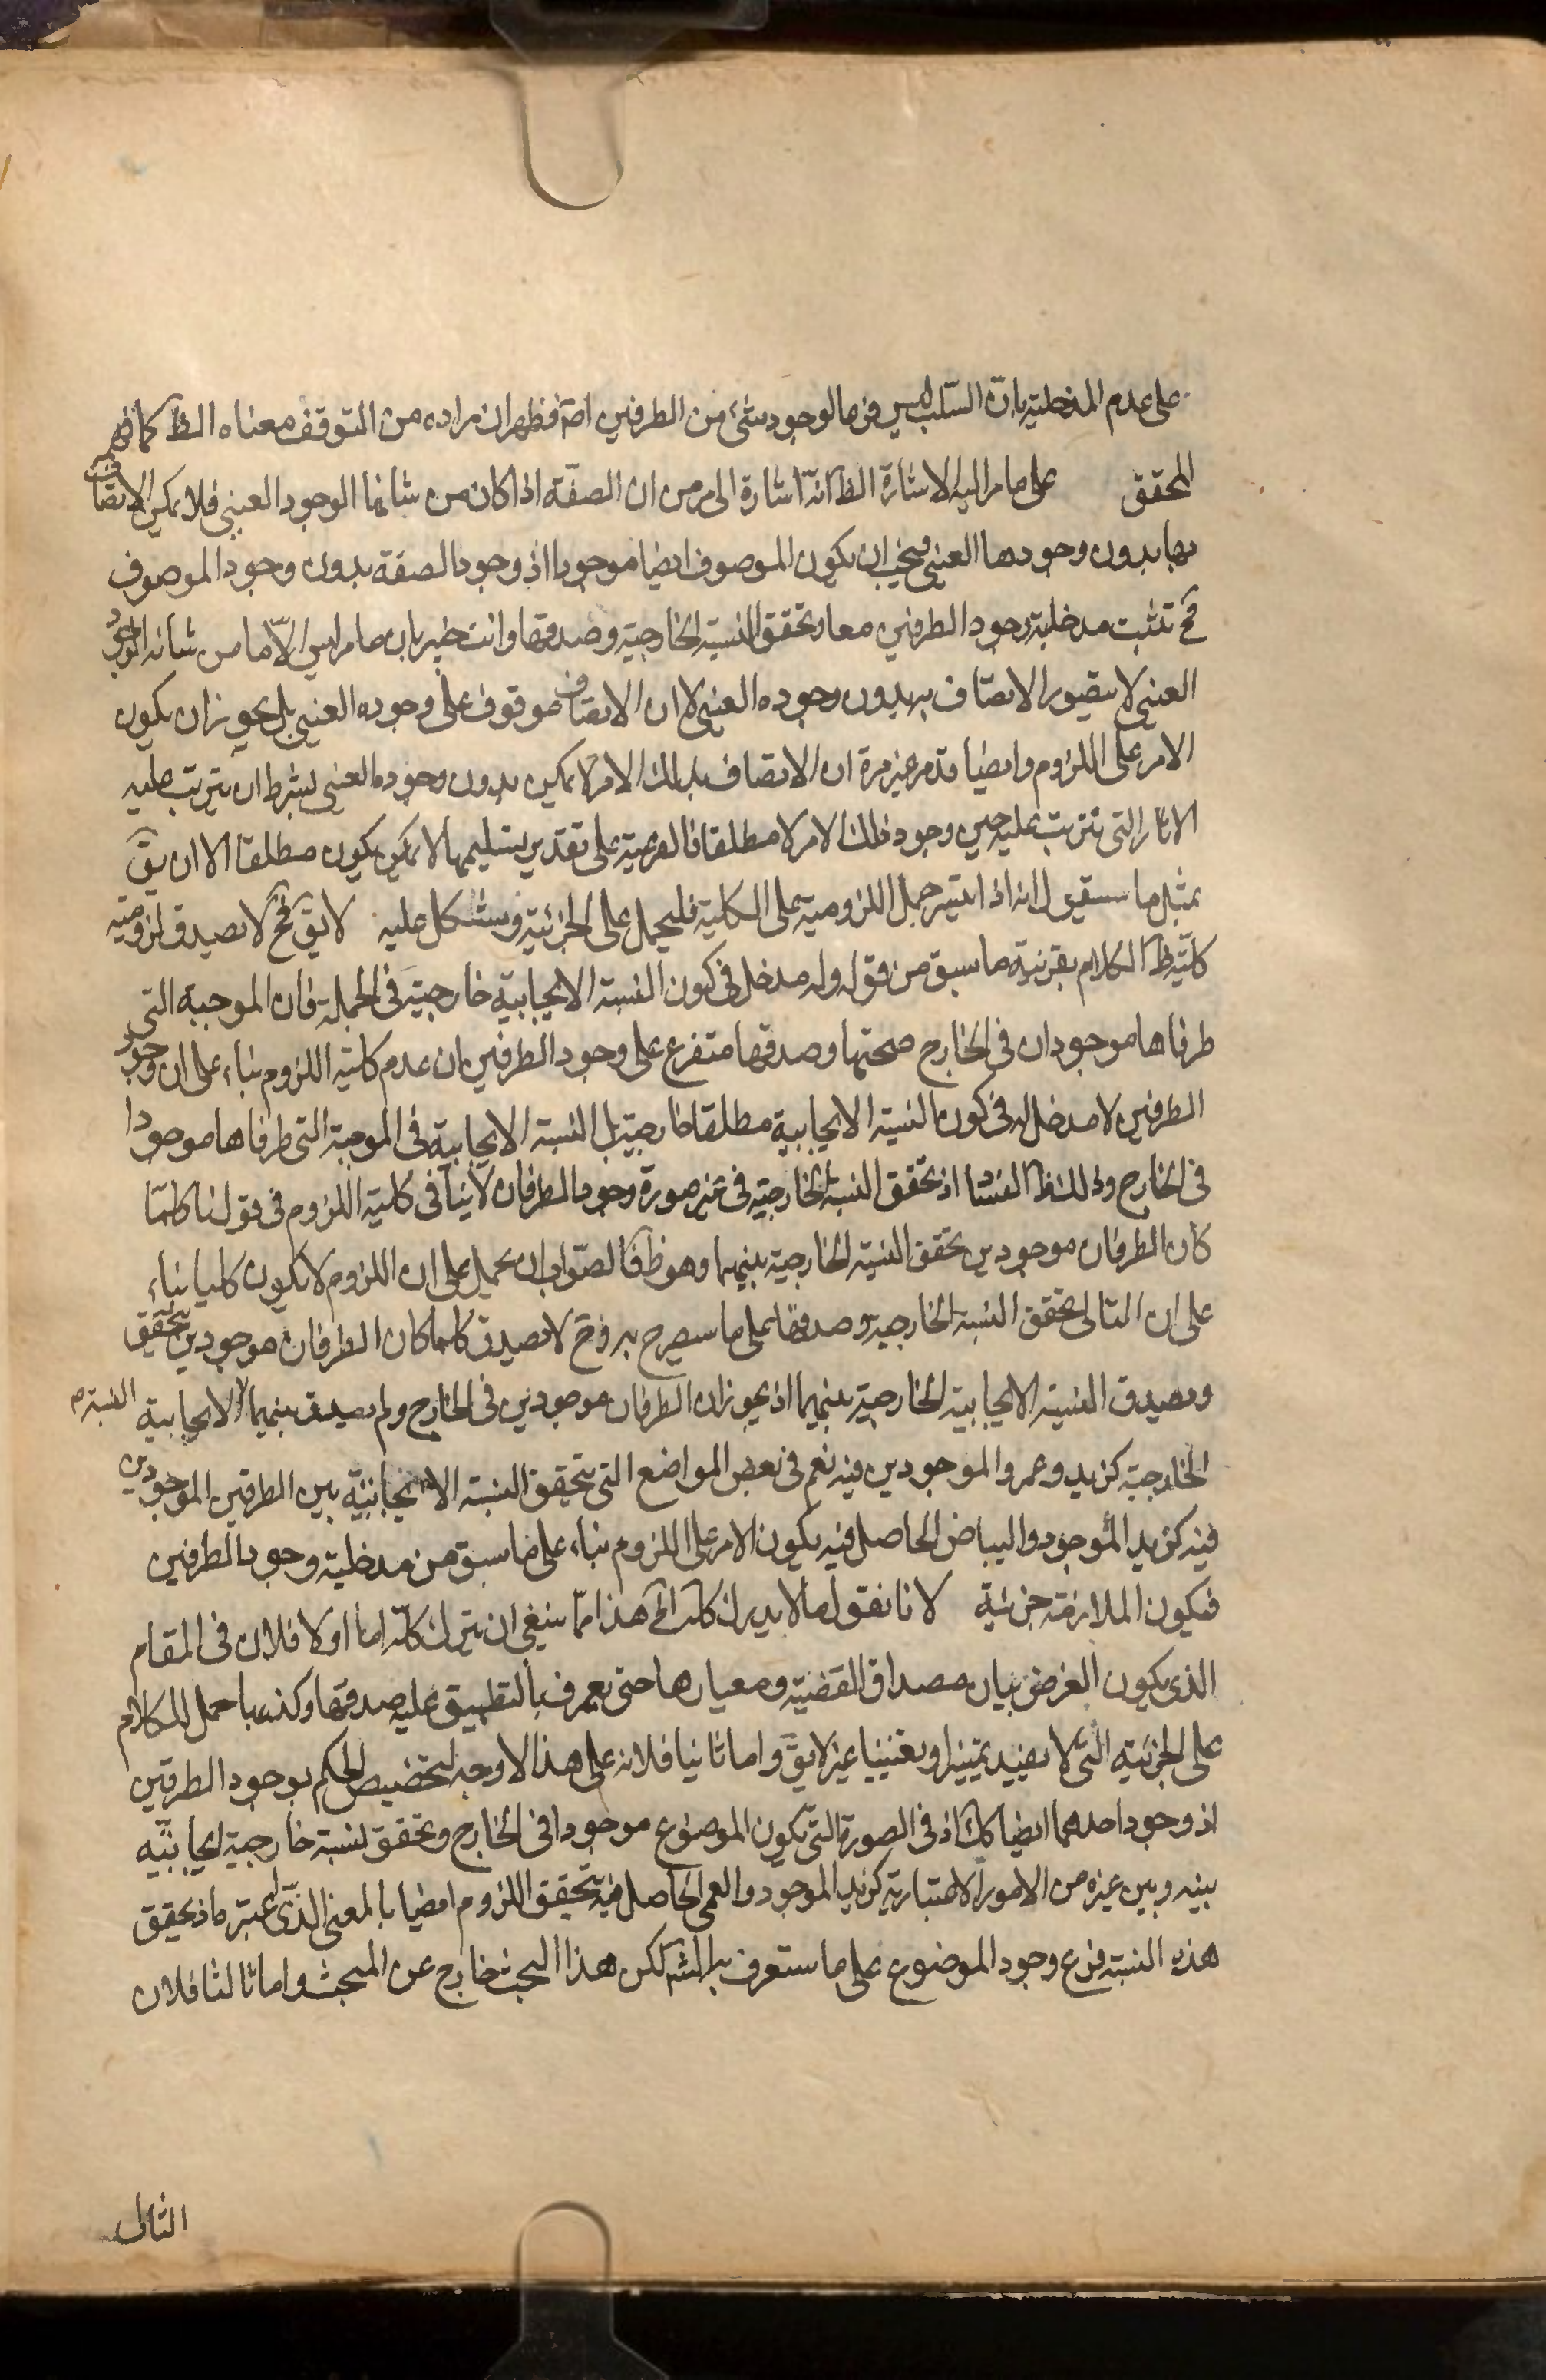 على عدم المدخلية بان السلب ليس فرعا لوجود شئ من الطرفين اصلا فظهر ان مراده من التوقف معناه الظ كما فهم
المحقق على ما مر اليه الاشارة الظ انه اشارة الى مر من ان الصفة اذا كان من شانها الوجود العيني فلا يمكن الاتصاف
بها بدون وجودها العيني فيجب ان يكون الموصوف ايضا موجودا اذ وجود الصفة بدون وجود الموصوف
فح تثبت مدخلية وجود الطرفين معا وتحقق النسبة الخارجية وصدقها وانت خبير بان ما مر ليس الا ما من شانه الوجود
العيني لا يتصور الاتصاف به بدون وجوده العيني لا ان الاتصاف موقوف على وجوده العيني بل يجوز ان يكون
الامر على اللزوم وايضا قد مر غير مرة ان الاتصاف بذلك الامر لا يمكن بدون وجوده العيني بشرط ان يترتب عليه
الاثار التى تترتب عليه حين وجود ذلك الامر لا مطلقا فالفرعية على تقدير تسليمها لا يمكن يكون مطلقا الا ان يق
بمثل ما سيقول انه اذا لم يتيسر حمل اللزومية على الكلية فليحمل على الجزئية ويشكل عليه لا يق فح لا تصدق لزومية
كلية ظ الكلام بقرينة ما سبق من قوله وله مدخل فى كون النسبة الايجابية خارجية فى الجملة فان الموجبة التى
طرفاها موجودان فى الخارج صحتها وصدقها متفرع على وجود الطرفين بان عدم كلية اللزوم بناء على ان وجود
الطرفين لا مدخل له فى كون النسبة الايجابية مطلقا خارجية بل النسبة الايجابية فى الموجبة التى طرفاها موجودا
فى الخارج وذلك ظ الفساد اذ تحقق النسبة الخارجية فى غير صورة وجود الطرفان لا ينافى كلية اللزوم فى قولنا كلما
كان الطرفان موجودين تحقق النسبة الخارجية بينهما وهو ظ فالصواب ان يحمل على ان اللزوم لا يكون كليا بناء
على ان التالى تحقق النسبة الخارجية وصدقها على ما سيصرح به وح لا تصدق كلما كان الطرفان موجودين يتحقق
ويصدق النسبة الايجابية الخارجية بينهما اذ يجوز ان الطرفان موجودين فى الخارج ولم يصدق بينهما النسبة الايجابية
الخارجية كزيد وعمرو الموجودين فيه نعم فى بعض المواضع التى يتحقق النسبة الايجابية بين الطرفين الموجودين
فيه كزيد الموجود والبياض الحاصل فيه يكون الامر على اللزوم بناء على ما سبق من مدخلية وجود الطرفين
فيكون الملازمة جزئية لانا نقول ما لا يدرك كله الخ هذا مما ينبغى ان يترك كله اما اولا فلان فى المقام
الذى يكون الغرض بيان مصداق القضية ومعيارها حتى يعرف بالتطبيق عليه صدقها وكذبها حمل الكلام
على الجزئية التى لا يفيد تمييزا وتعيينا غير لايق واما ثانيا فلانه على هذا لا وجه لتخصيص الحكم بوجود الطرفين
اذ وجود احدهما ايضا كك اذ فى الصورة التى يكون الموضوع موجودا فى الخارج وتحقق نسبة خارجية ايجابية
بينه وبين غيره من الامور الاعتبارية كزيد الموجود والعمى الحاصل فيه يتحقق اللزوم ايضا بالمعنى الذى اعتبره اذ تحقق
هذه النسبة فرع وجود الموضوع على ما ستعرف به لكن هذا البحث خارج عن المبحث واما ثالثا فلان
التالى